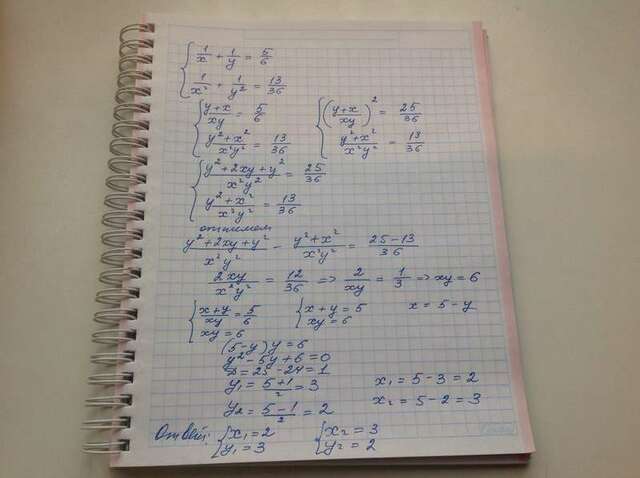 { 1/x + 1/y = 5/6
1/x² + 1/y² = 13/36
{ (y+x)/xy = 5/6
(y²+x²)/x²y² = 13/36
{ ((y+x)/xy)² = 25/36
(y²+x²)/x²y² = 13/36
{ (y²+2xy+y²)/x²y² = 25/36
(y²+x²)/x²y² = 13/36
отнимем
(y²+2xy+y²)/x²y² - (y²+x²)/x²y² = (25-13)/36
2xy/x²y² = 12/36 => 2/xy = 1/3 => xy = 6
{ (x+y)/xy = 5/6
xy = 6
{ x+y = 5
xy = 6
x = 5-y
(5-y)y = 6
y²-5y+6=0
D=25-24=1
y₁ = (5+1)/2 = 3
y₂ = (5-1)/2 = 2
x₁ = 5-3 = 2
x₂ = 5-2 = 3
Ответ: { x₁=2
y₁=3
{ x₂=3
y₂=2